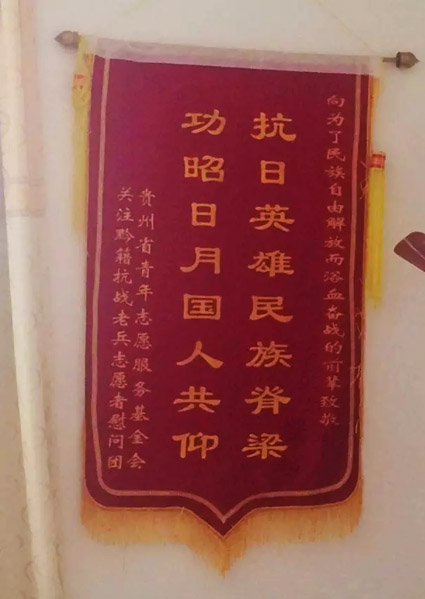 向为了民族自由解放而浴血奋战的前辈致敬
抗日英雄民族脊梁
功昭日月国人共仰
贵州省青年志愿服务基金会
关注黔籍抗战老兵志愿者慰问团